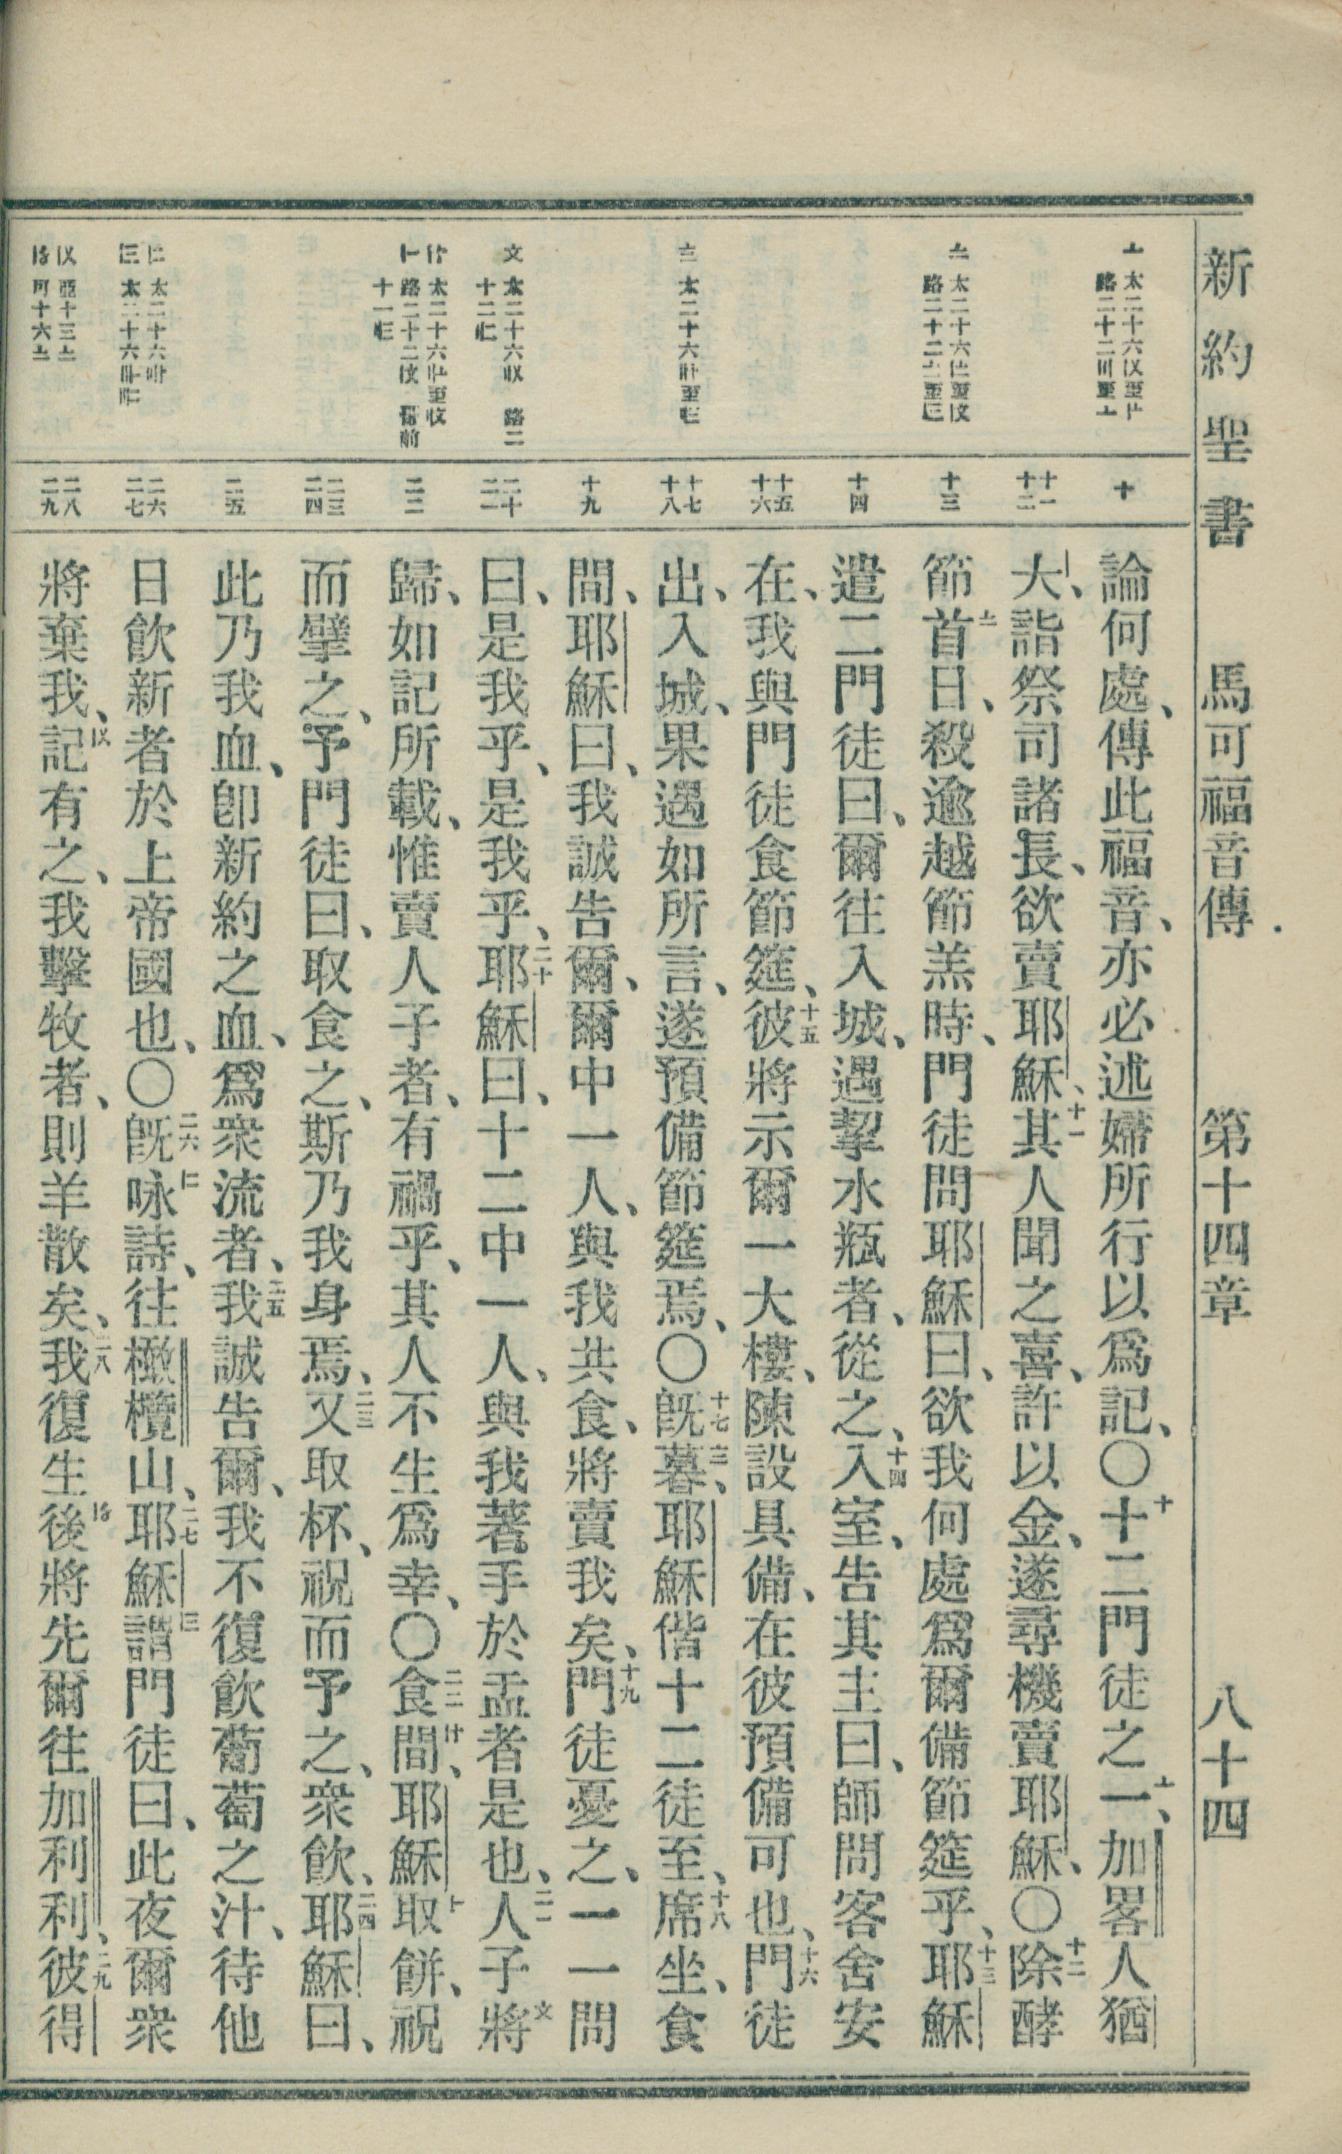 新約聖書　馬可福音傳　第十四章　八十四
十
十一
十二
十三
十四
十五
十六
十七
十八
十九
二十
二一
二二
二三
二四
二五
二六
二七
二八
二九
論何處、傳此福音、亦必述婦所行以爲記、〇十十二門徒之一、加畧人猶
大、詣祭司諸長、欲賣耶穌、十一其人聞之喜、許以金、遂尋機賣耶穌、〇十二除酵
節首日、殺逾越節羔時、門徒問耶穌曰、欲我何處爲爾備節筵乎、十三耶穌
遣二門徒曰、爾往入城、遇挈水瓶者、從之、十四入室、告其主曰、師問客舍安
在、我與門徒食節筵、十五彼將示爾一大樓、陳設具備、在彼預備可也、十六門徒
出、入城、果遇如所言、遂預備節筵焉、〇十七旣暮、耶穌偕十二徒至、十八席坐、食
間、耶穌曰、我誠告爾、爾中一人、與我共食、將賣我矣、十九門徒憂之、一一問
曰、是我乎、是我乎、二十耶穌曰、十二中一人、與我著手於盂者是也、二一人子將
歸、如記所載、惟賣人子者、有禍乎、其人不生爲幸、〇二二食間、耶穌取餅、祝
而擘之、予門徒曰、取食之、斯乃我身焉、二三又取杯、祝而予之、衆飮、二四耶穌曰、
此乃我血、卽新約之血、爲衆流者、二五我誠告爾、我不復飮葡萄之汁、待他
日飮新者於上帝國也、〇二六旣咏詩、往橄欖山、二七耶穌謂門徒曰、此夜爾衆
將棄我、記有之、我擊牧者、則羊散矣、二八我復生後將先爾往加利利、二九彼得